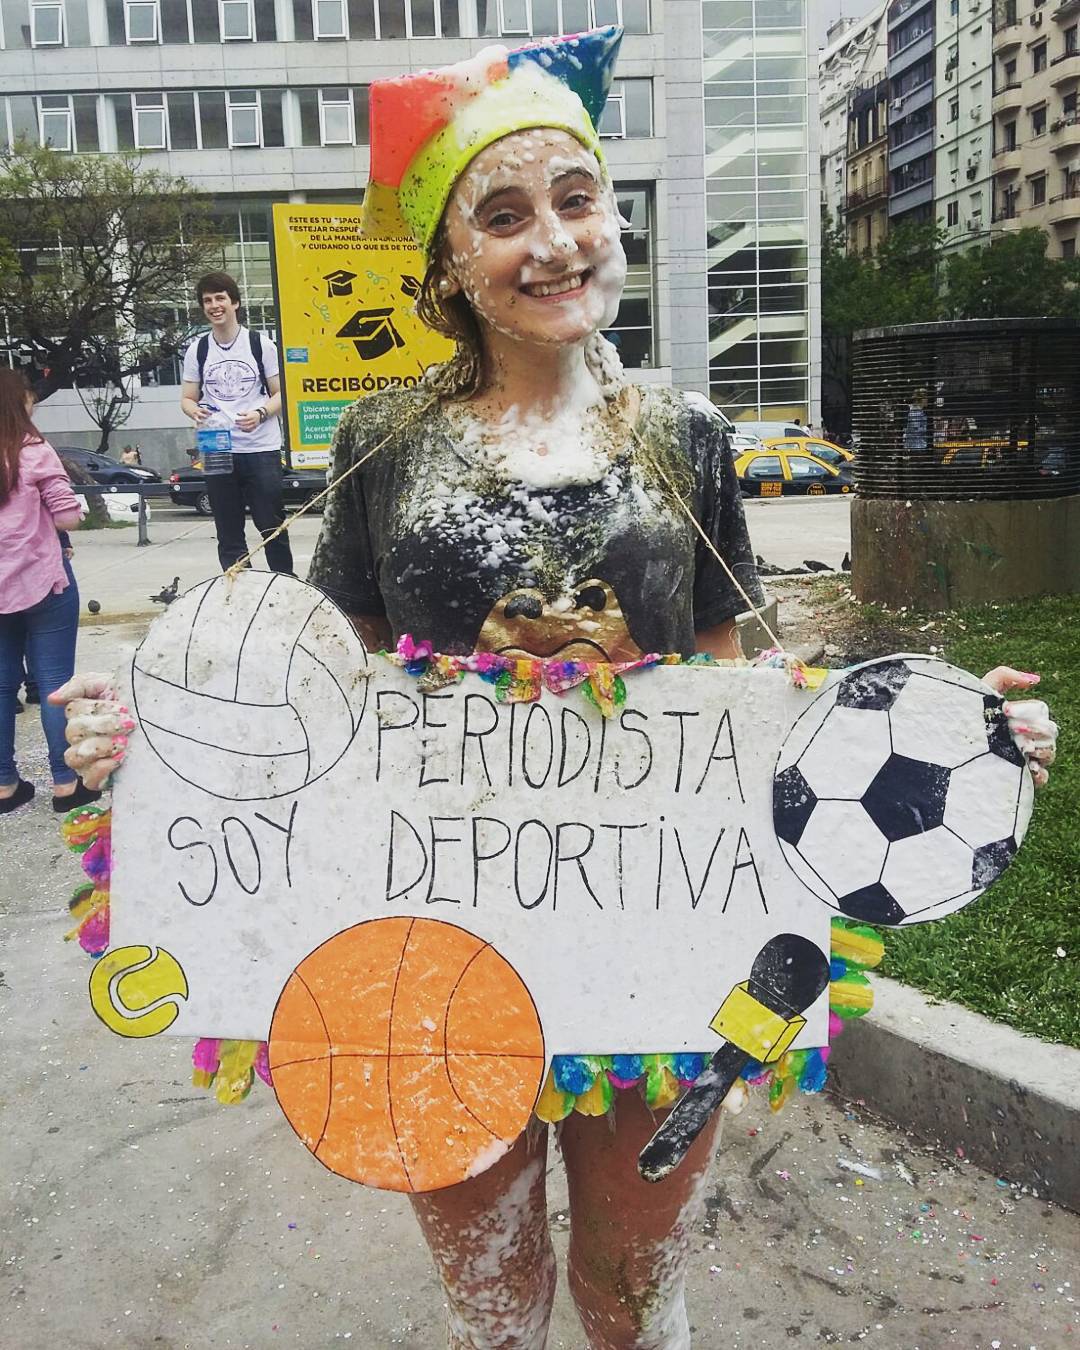 ÉSTE ES TU ESPACI
FESTEJAR DESPUÉ
DE LA MANERA TRADICIONA
Y CUIDANDO LO QUE ES DE TOD
RECIBÓDRO
Ubicate en e
para recibi
Acercate
lo que te
PERIODISTA
SOY DEPORTiVA